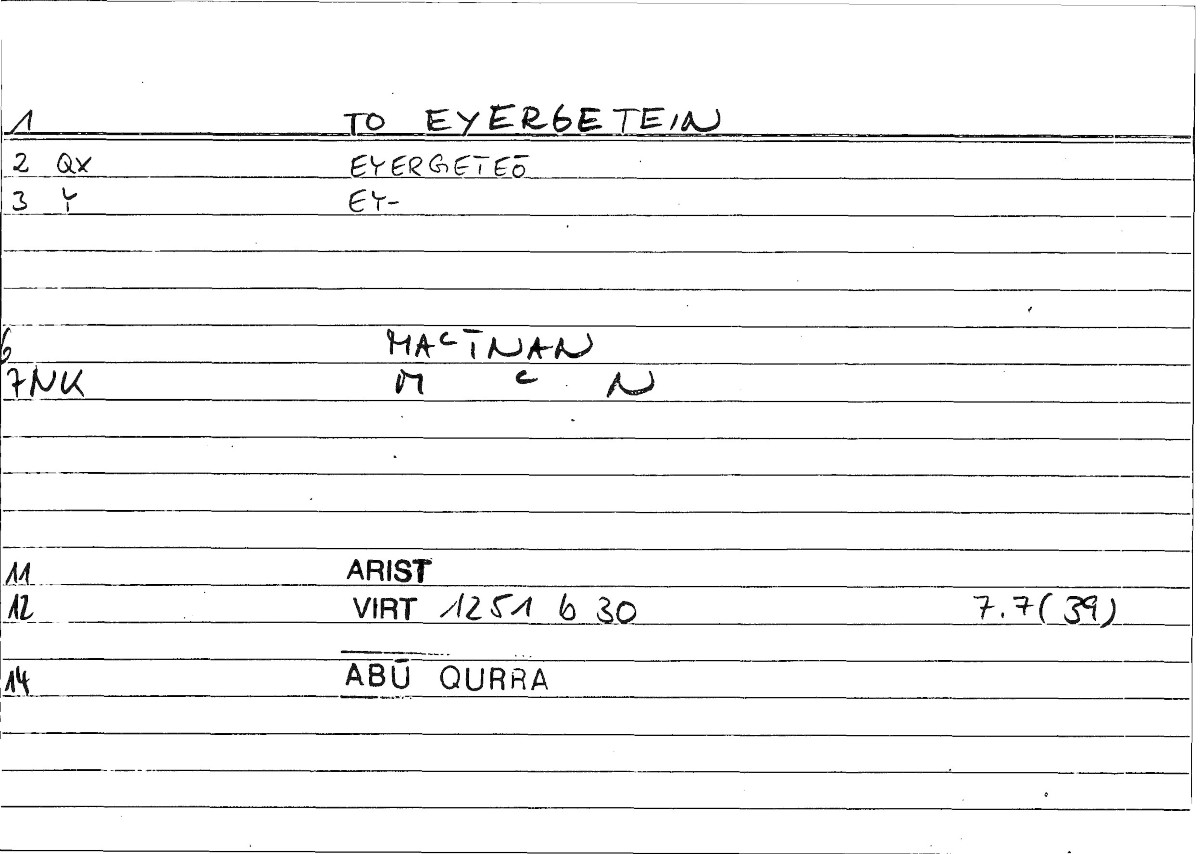 1 TO EYERGETEIN
2 QX EYERGETEŌ
3 Y EY-
6 MAʿĪNAN
7NK M ʿ N
11 ARIST
12 VIRT 1251 b 30 7.7(39)
14 ABŪ QURRA